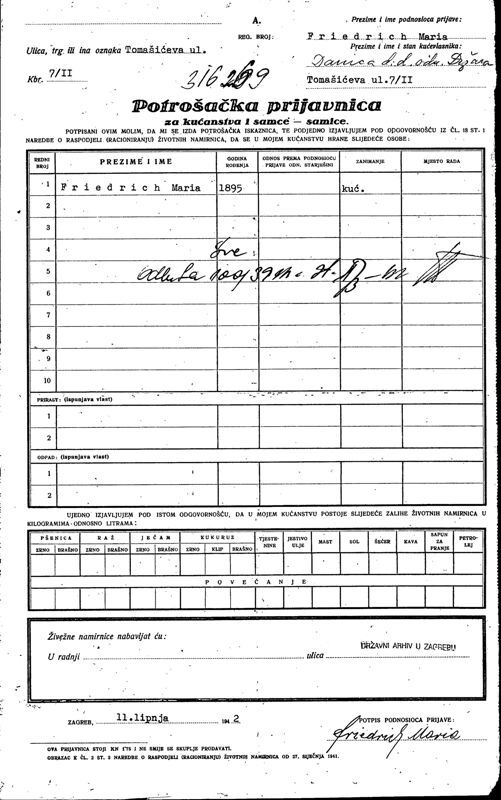 A.
Prezime i ime podnosioca prijave:
REG. BROJ:
Friedrich Maria
Ulica, trg ili ina oznaka Tomašićeva ul.
Prezime i ime i stan kućevlasnika:
Danica d.d. odn. Država
Kbr. 7/II
Tomašićeva ul.7/II
Potrošačka prijavnica
za kućanstva i samce — samice.
POTPISANI OVIM MOLIM, DA MI SE IZDA POTROŠAČKA ISKAZNICA, TE PODJEDNO IZJAVLJUJEM POD ODGOVORNOŠĆU IZ ČL. 18 ST. 1
NAREDBE O RASPODJELI (RACIONIRANJU) ŽIVOTNIH NAMIRNICA, DA SE U MOJEM KUĆANSTVU HRANE SLIJEDEĆE OSOBE:
REDNI BROJ PREZIME I IME GODINA ROĐENJA ODNOS PREMA PODNOSIOCU PRIJAVE ODN. STARJEŠINI ZANIMANJE MJESTO RADA
1 Friedrich Maria 1895 kuć.
2
3
4
5
6
7
8
9
10
PRIRAST: (ispunjava vlast)
1
2
ODPAD: (ispunjava vlast)
1
2
UJEDNO IZJAVLJUJEM POD ISTOM ODGOVORNOŠĆU, DA U MOJEM KUĆANSTVU POSTOJE SLIJEDEĆE ZALIHE ŽIVOTNIH NAMIRNICA U
KILOGRAMIMA - ODNOSNO LITRAMA:
PŠENICA RAŽ JEČAM KUKURUZ TJESTENINE JESTIVO ULJE MAST SOL ŠEĆER KAVA SAPUN ZA PRANJE PETROLEJ
ZRNO BRAŠNO ZRNO BRAŠNO ZRNO BRAŠNO ZRNO KLIP BRAŠNO
POVEĆANJE
Živežne namirnice nabavljat ću:
U radnji ulica
DRŽAVNI ARHIV U ZAGREBU
ZAGREB, 11.lipnja 1942
POTPIS PODNOSIOCA PRIJAVE:
Friedrich Maria
OVA PRIJAVNICA STOJI KN 1'75 I NE SMIJE SE SKUPLJE PRODAVATI.
OBRAZAC K ČL. 2 ST. 3 NAREDBE O RASPODJELI (RACIONIRANJU) ŽIVOTNIH NAMIRNICA OD 27. SIJEČNJA 1941.